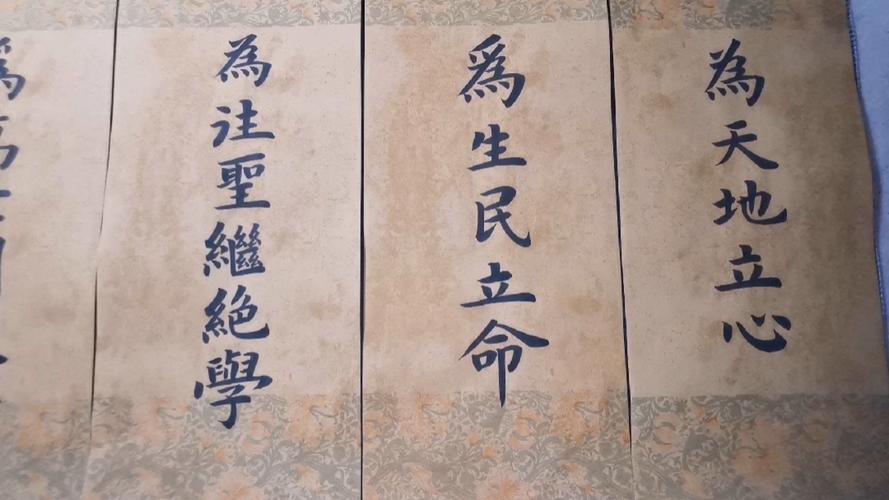 為天地立心
爲生民立命
為往聖繼絶學